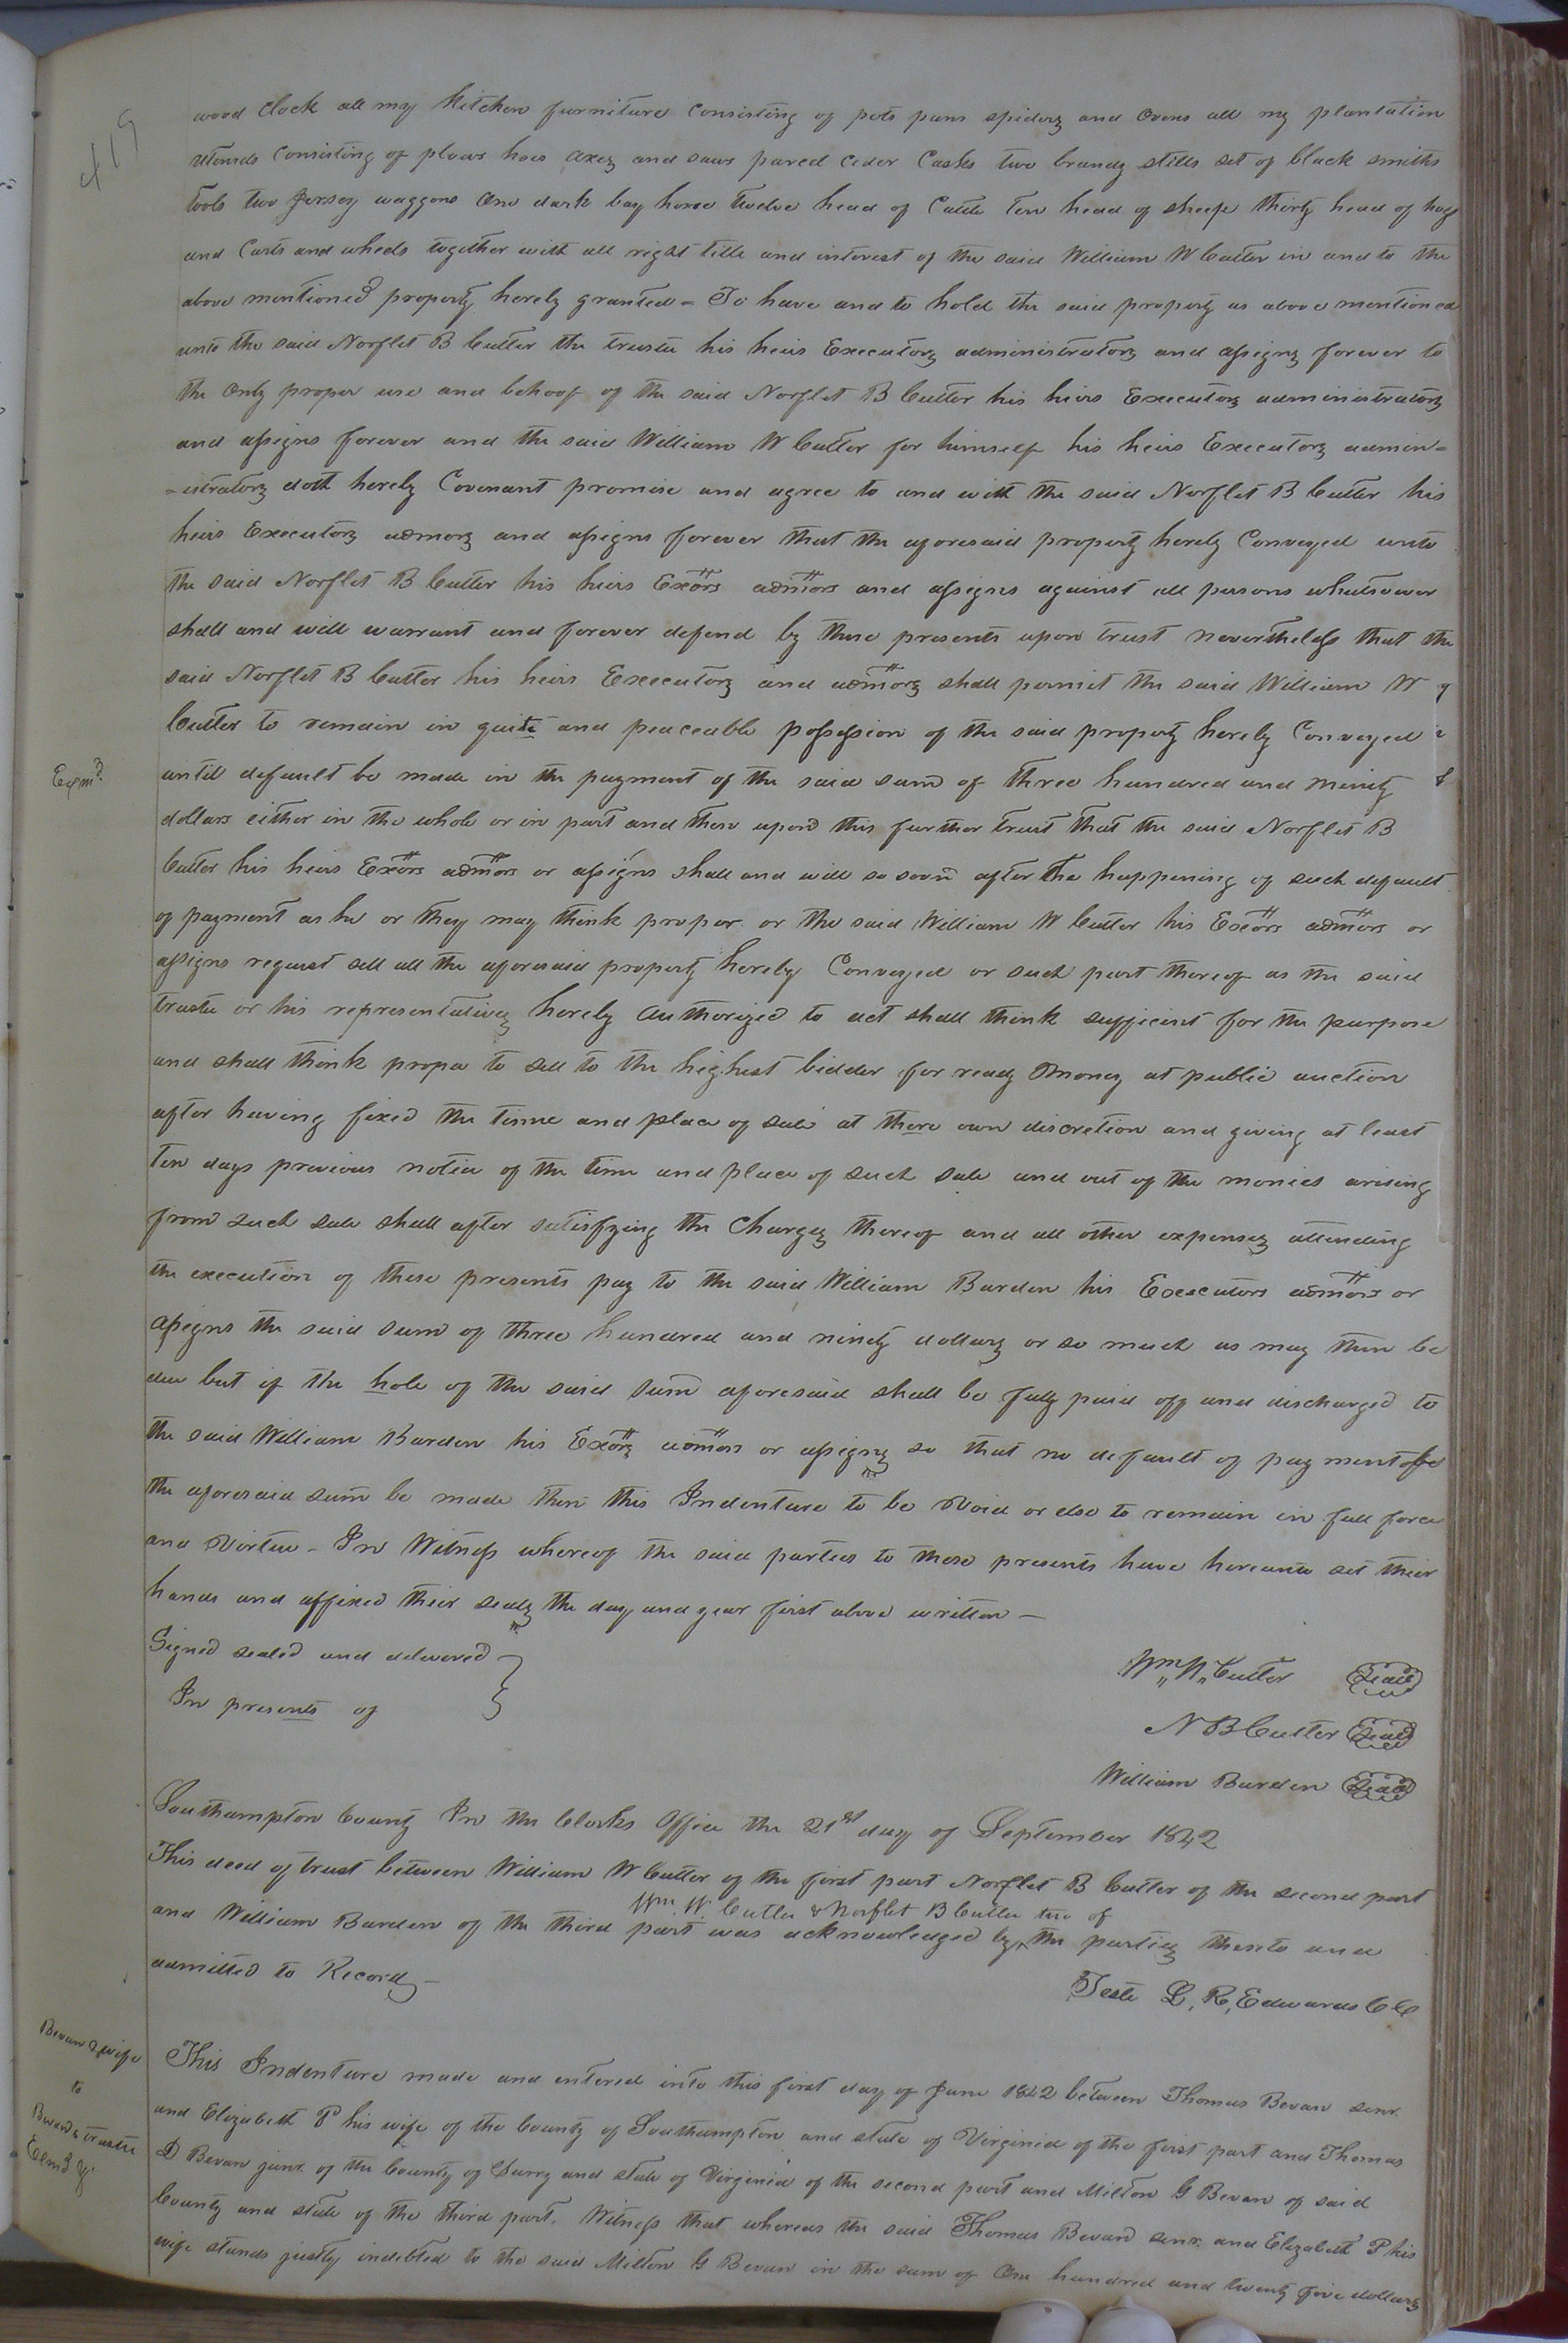 419
wood clock all my kitchen furniture consisting of pots pans spiders and ovens all my plantation
utensils consisting of plows hoes axes and saws parcel cider casks two brandy stills set of black smiths
tools two Jersey waggons One dark bay horse twelve head of Cattle Ten head of sheep thirty head of hogs
and Carts and wheels together with all right title and interest of the said William W Cutler in and to the
above mentioned property hereby granted - To have and to hold the said property as above mentioned
unto the said Norflet B Cutler the trustee his heirs Executors administrators and assigns forever to
the Only proper use and behoof of the said Norflet B Cutler his heirs Executors administrators
and assigns forever and the said William W Cutler for himself his heirs Executors admin=
=istrators doth hereby Covenant promise and agree to and with the said Norflet B Cutler his
heirs Executors admors and assigns forever that the aforesaid property hereby Conveyed unto
the said Norflet B Cutler his heirs Exors admors and assigns against all persons whatsoever
shall and will warrant and forever defend by these presents upon trust nevertheless that the
said Norflet B Cutler his heirs Executors and admors shall permit the said William W
Cutler to remain in quite and peaceable possession of the said property hereby Conveyed
Exmd
until default be made in the payment of the said sum of three hundred and ninety
dollars either in the whole or in part and then upon this further trust that the said Norflet B
Cutler his heirs Exors admors or assigns shall and will so soon after the happening of such default
of payment as he or they may think proper or the said William W Cutler his Exors admors or
assigns request sell all the aforesaid property hereby Conveyed or such part thereof as the said
trustee or his representatives hereby authorized to act shall think sufficient for the purpose
and shall think proper to sell to the highest bidder for ready money at public auction
after having fixed the time and place of sale at there own discretion and giving at least
Ten days previous notice of the time and place of such sale and out of the monies arising
from such sale shall after satisfying the Charges thereof and all other expenses attending
the execution of these presents pay to the said William Burden his Executors admors or
assigns the said sum of three hundred and ninety dollars or so much as may then be
due but if the hole of the said sum aforesaid shall be fully paid off and discharged to
the said William Burden his Exors admors or assigns so that no default of payment of
the aforesaid sum be made then this Indenture to be Void or else to remain in full force
and Virtue - In Witness whereof the said parties to these presents have hereunto set their
hands and affixed their seals the day and year first above written -
Signed sealed and delivered
In presents of
Wm W Cutler Seal
N B Cutler Seal
William Burden Seal
Southampton County In the Clerks Office the 21st day of September 1842
This deed of trust between William W Cutler of the first part Norflet B Cutler of the second part
Wm. W. Cutler & Norflet B Cutler two of
and William Burden of the third part was acknowledged by the parties thereto and
admitted to Record -
Teste L. R. Edwards CC
Bevan & wife
to
Bevan's trustee
This Indenture made and entered into this first day of June 1842 between Thomas Bevan senr.
and Elizabeth P his wife of the County of Southampton and state of Virginia of the first part and Thomas
D Bevan junr. of the County of Surry and state of Virginia of the second part and Milton G Bevan of said
County and state of the third part. Witness that whereas the said Thomas Bevan senr. and Elizabeth P his
wife stands justly indebted to the said Milton G Bevan in the sum of One hundred and twenty five dollars